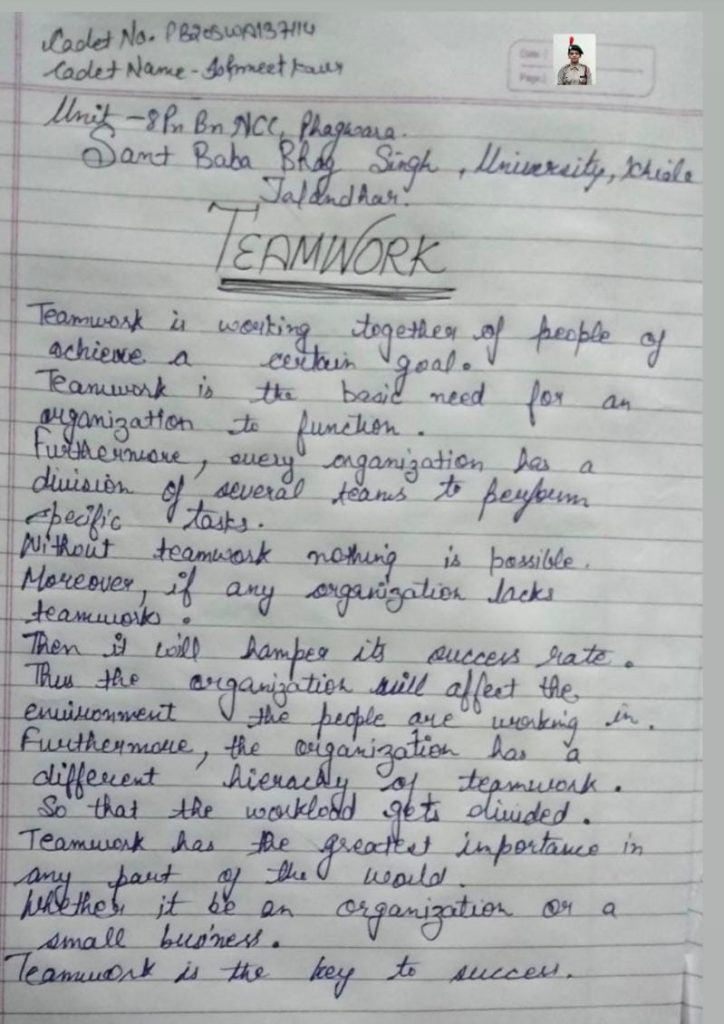 Cadet No. PB20SWA137114
Cadet Name - Jofmeet Kaur
Date :
Page :
Unit - 8 Pn Bn NCC, Phagwara.
Sant Baba Bhag Singh , University, Khiala
Jalandhar.
TEAMWORK
Teamwork is working together of people of
achieve a certain goal.
Teamwork is the basic need for an
organization to function.
Furthermore, every organization has a
division of several teams to perform
specific tasks.
Without teamwork nothing is possible.
Moreover, if any organization lacks
teamwork.
Then it will hamper its success rate.
Thus the organization will affect the
environment the people are working in.
Furthermore, the organization has a
different hierachy of teamwork.
So that the workload gets divided.
Teamwork has the greatest importance in
any part of the world.
Whether it be an organization or a
small business.
Teamwork is the key to success.